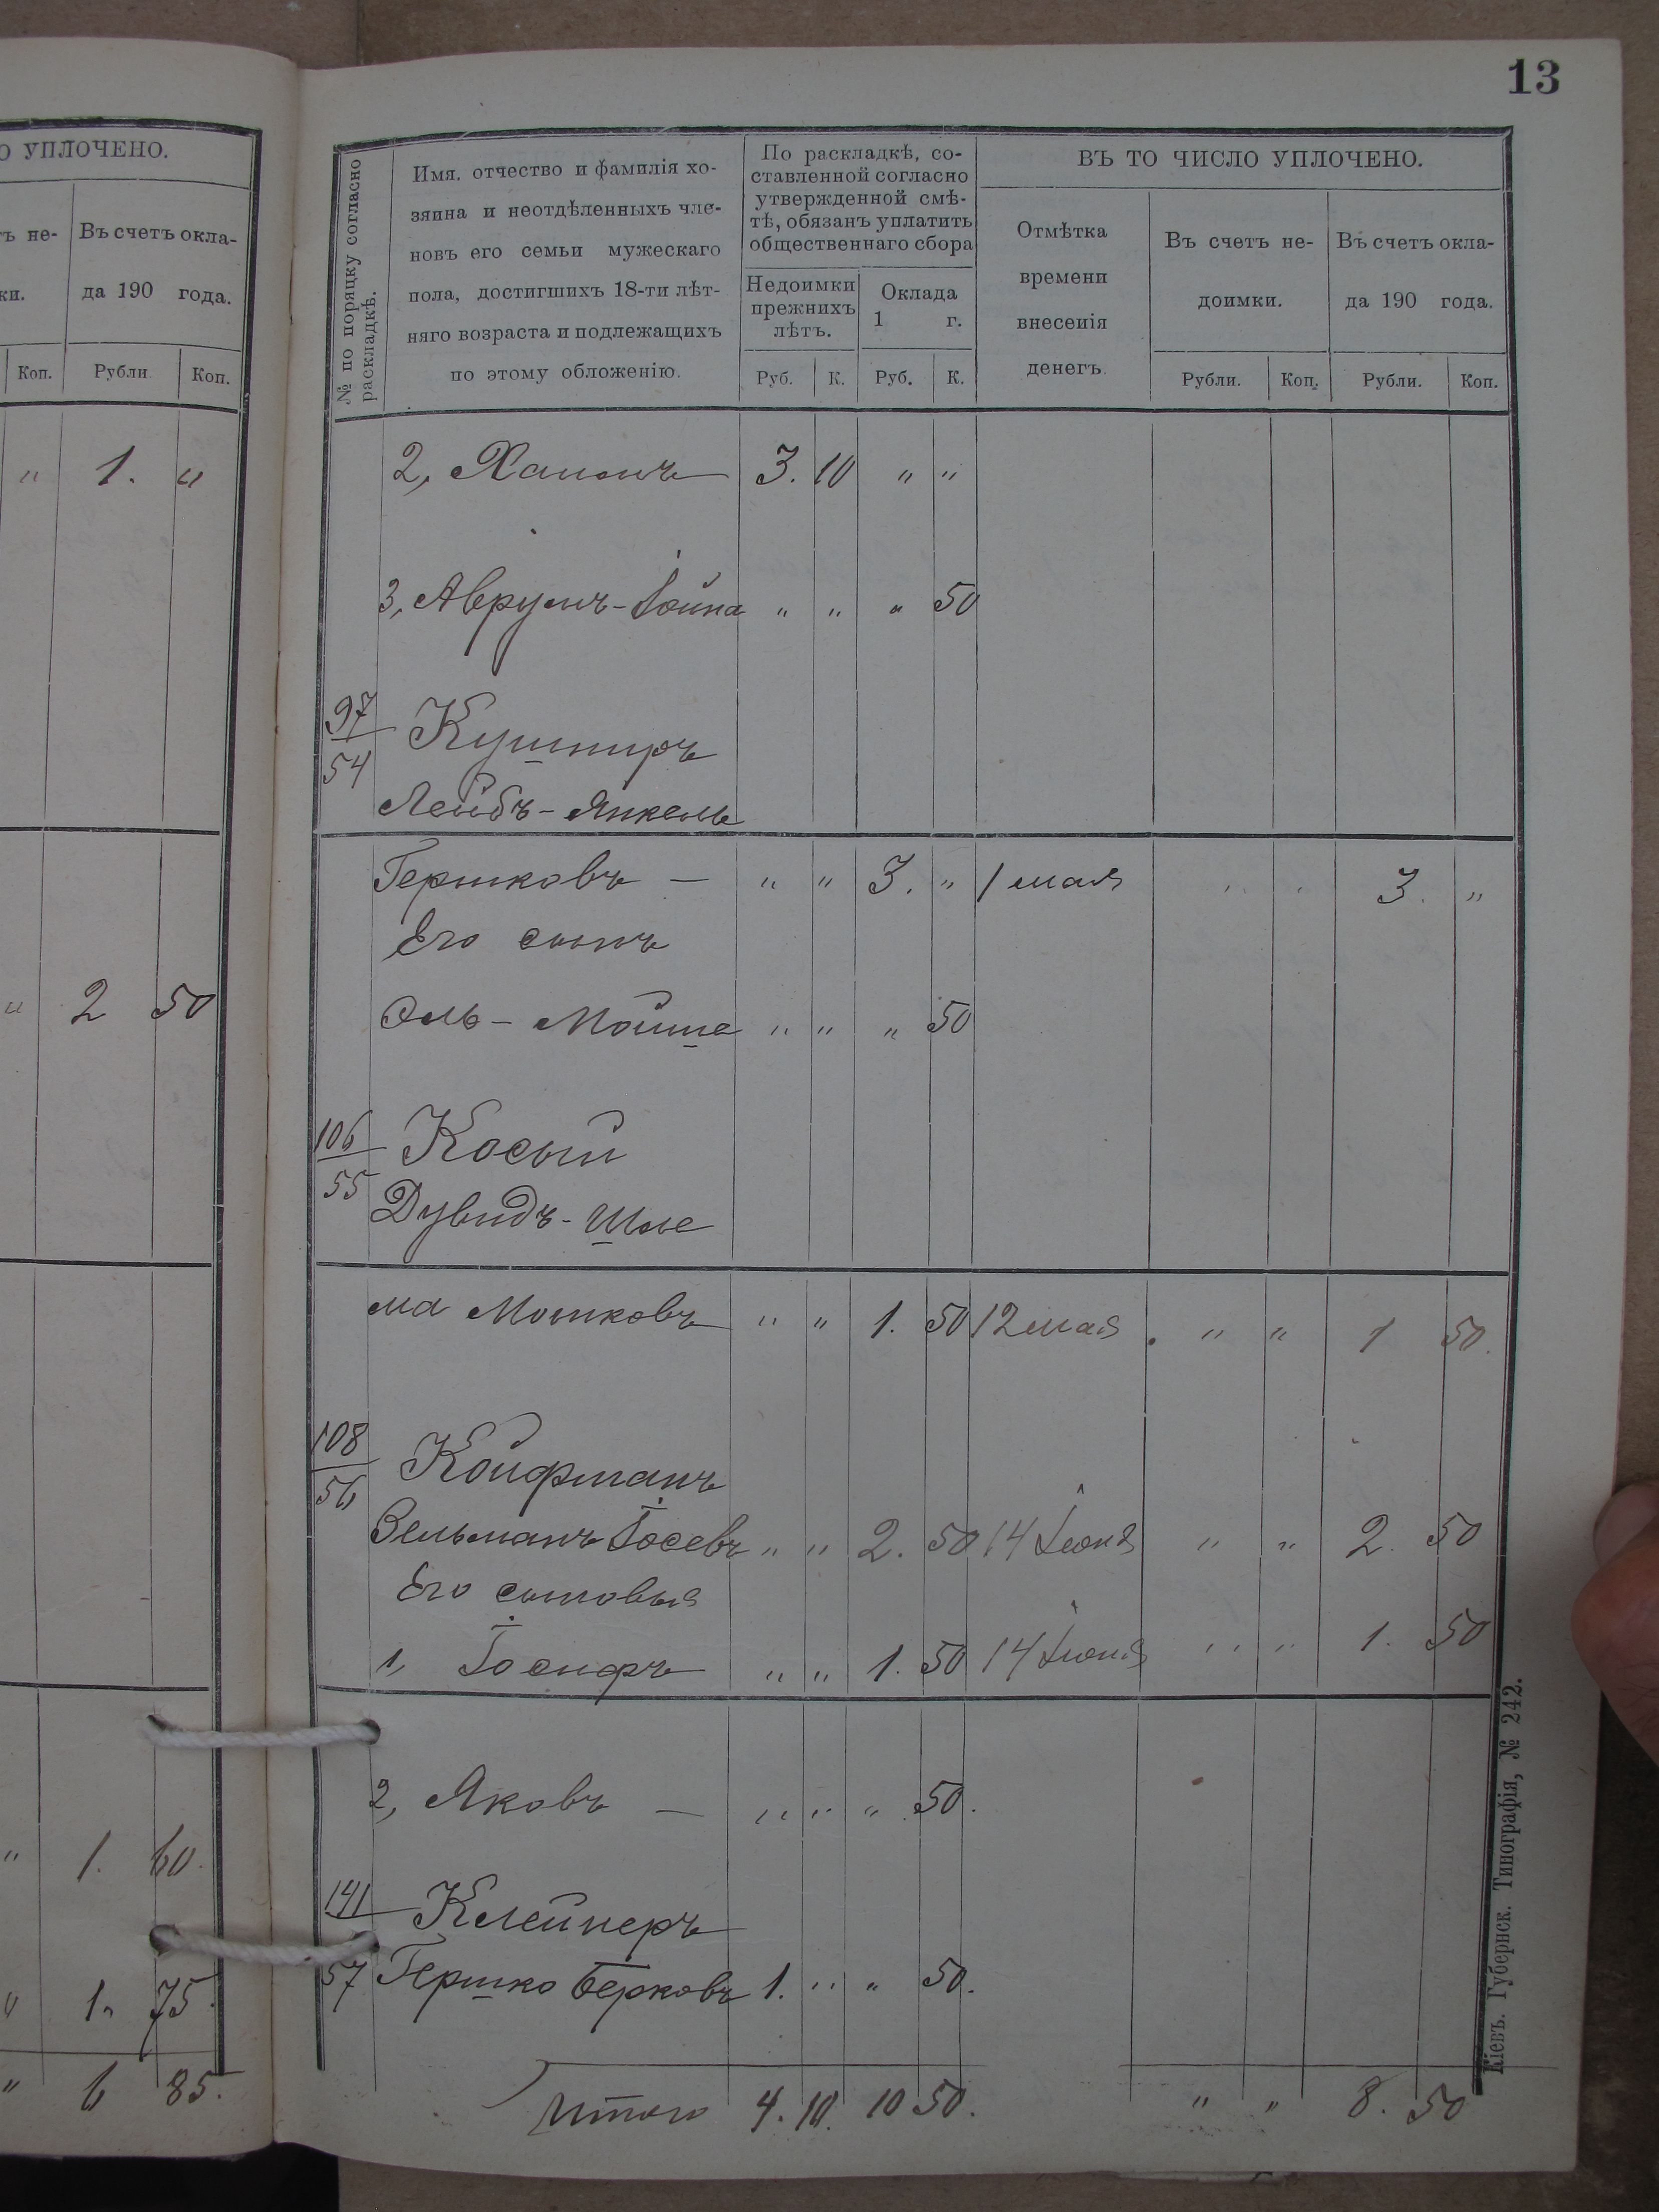 О УПЛОЧЕНО.
ъ не-
Въ счетъ окла-
ки.
да 190 года.
Коп.
Рубли.
Коп.
" 1. "
" 2 50
" 1. 60.
" 1. 75.
" 6 85.
13
№ по порядку согласно
раскладкѣ.
Имя, отчество и фамилія хо-
зяина и неотдѣленныхъ чле-
новъ его семьи мужескаго
пола, достигшихъ 18-ти лѣт-
няго возраста и подлежащихъ
по этому обложенію.
По раскладкѣ, со-
ставленной согласно
утвержденной смѣ-
тѣ, обязанъ уплатить
общественнаго сбора
Недоимки
прежнихъ
лѣтъ.
Оклада
1 г.
Руб. К. Руб. К.
ВЪ ТО ЧИСЛО УПЛОЧЕНО.
Отмѣтка
времени
внесенія
денегъ.
Въ счетъ не-
доимки.
Въ счетъ окла-
да 190 года.
Рубли. Коп. Рубли. Коп.
2, Хаимъ 3. 10 " "
3, Аврумъ-Іойна " " " 50
97
54
Кушниръ
Лейбъ-Янкель
Гершковъ — " " 3. " 1 мая " " 3. "
Его сынъ
Эль-Мойше " " " 50
106
55
Косый
Дувидъ-Шле
ма Мошковъ " " 1. 50 12 мая " " 1 50.
108
56
Койфманъ
Зельманъ Іосевъ " " 2. 50 14 Іюня " " 2. 50
Его сыновья
1, Іосифъ " " 1. 50 14 Іюня " " 1. 50
2, Яковъ — " " " 50.
141
57
Клейнеръ
Гершко Берковъ 1. " " 50.
Итого 4. 10. 10 50. " " 8. 50
Кіевъ. Губернск. Типографія, № 242.